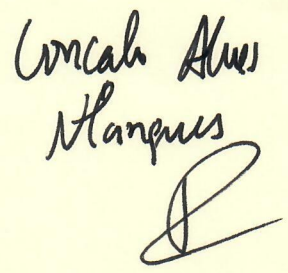 Goncalo Alves
Marques